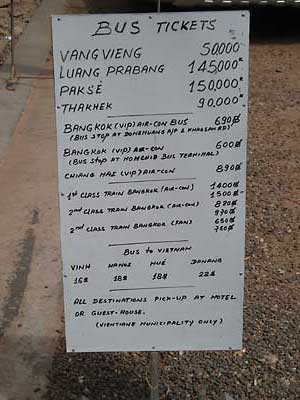 BUS TICKETS
VANGVIENG 50,000
LUANG PRABANG 145,000
PAKSÉ 150,000
THAKHEK 90,000
BANGKOK (VIP) AIR-CON BUS 690฿
(BUS STOP AT DONMUANG A/P & KHAOSAN RD)
BANGKOK (VIP) AIR-CON 600฿
(BUS STOP AT MORCHID BUS TERMINAL)
CHIANG MAI (VIP) AIR-CON 890฿
1st CLASS TRAIN BANGKOK (AIR-CON) 1400฿
1500฿
2nd CLASS TRAIN BANGKOK (AIR-CON) 890฿
970฿
2nd CLASS TRAIN BANGKOK (FAN) 650฿
750฿
BUS to VIETNAM
VINH HANOI HUÉ DANANG
16$ 18$ 18$ 22$
ALL DESTINATIONS PICK-UP AT HOTEL
OR GUEST-HOUSE.
(VIENTIANE MUNICIPALITY ONLY)